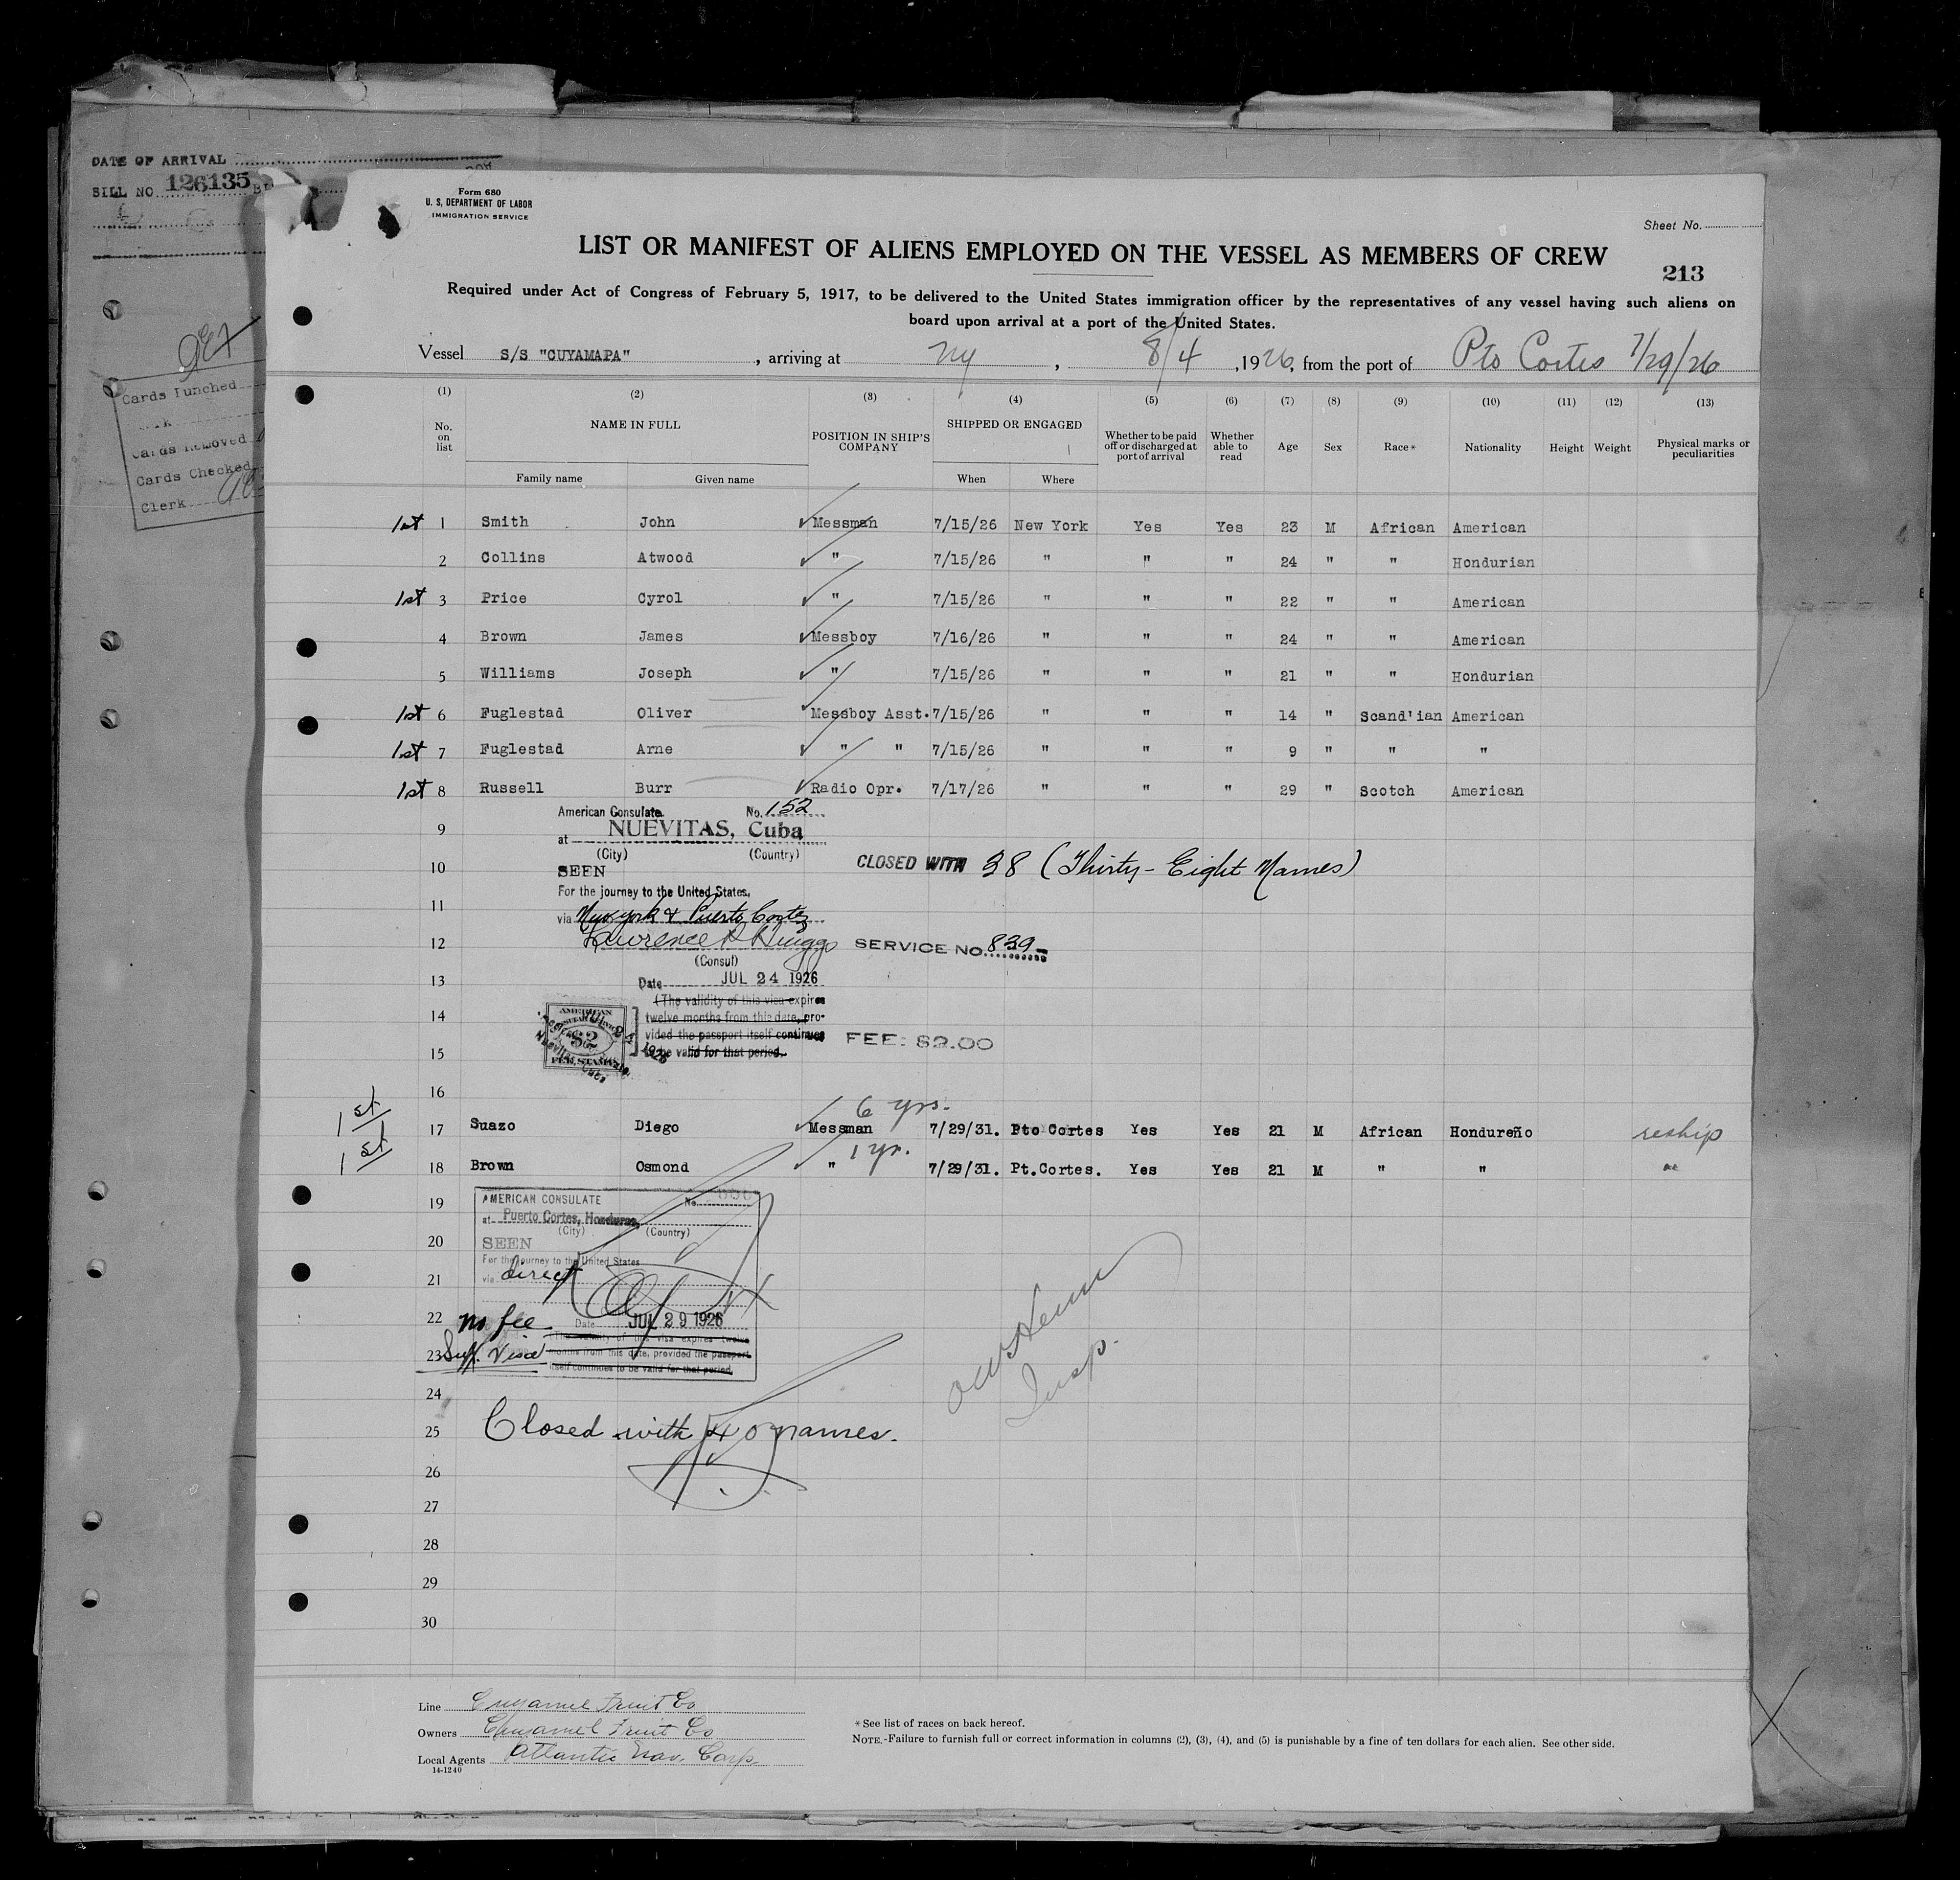 DATE OF ARRIVAL
BILL NO. 126135
Cards Punched
Cards Removed
Cards Checked
Clerk
Form 680
U. S. DEPARTMENT OF LABOR
IMMIGRATION SERVICE
Sheet No.
LIST OR MANIFEST OF ALIENS EMPLOYED ON THE VESSEL AS MEMBERS OF CREW
213
Required under Act of Congress of February 5, 1917, to be delivered to the United States immigration officer by the representatives of any vessel having such aliens on
board upon arrival at a port of the United States.
Vessel S/S "CUYAMAPA", arriving at Ny, 8/4, 1926, from the port of Pto Cortes 7/29/26
(1) (2) (3) (4) (5) (6) (7) (8) (9) (10) (11) (12) (13)
No. on list NAME IN FULL POSITION IN SHIP'S COMPANY SHIPPED OR ENGAGED Whether to be paid off or discharged at port of arrival Whether able to read Age Sex Race* Nationality Height Weight Physical marks or peculiarities
Family name Given name When Where
1st 1 Smith John Messman 7/15/26 New York Yes Yes 23 M African American
2 Collins Atwood " 7/15/26 " " " 24 " " Hondurian
1st 3 Price Cyrol " 7/15/26 " " " 22 " " American
4 Brown James Messboy 7/16/26 " " " 24 " " American
5 Williams Joseph " 7/15/26 " " " 21 " " Hondurian
1st 6 Fuglestad Oliver Messboy Asst. 7/15/26 " " " 14 " Scand'ian American
1st 7 Fuglestad Arne " " 7/15/26 " " " 9 " " "
1st 8 Russell Burr Radio Opr. 7/17/26 " " " 29 " Scotch American
American Consulate No. 152
9 at NUEVITAS, Cuba
(City) (Country)
10 SEEN CLOSED WITH 38 (Thirty-Eight Names)
For the journey to the United States,
11 via New york & Puerto Cortez
12 Lawrence SERVICE NO. 839
(Consul)
13 Date JUL 24 1926
(The validity of this visa expires
14 twelve months from this date, pro-
vided the passport itself continues FEE: $2.00
15 to be valid for that period.
AMERICAN
$2
FEE STAMP
16
6 yrs.
1st 17 Suazo Diego Messman 7/29/31. Pto Cortes Yes Yes 21 M African Hondureño reship
1 yr.
1st 18 Brown Osmond " 7/29/31. Pt.Cortes. Yes Yes 21 M " " "
19 AMERICAN CONSULATE No.
at Puerto Cortes, Honduras,
(City) (Country)
20 SEEN
For the journey to the United States
21 via direct
22 no fee Date JUL 29 1926
(The validity of this visa expires twelve
23 Suff. Visa months from this date, provided the passport
itself continues to be valid for that period.
Insp.
24
25 Closed with 40 names.
26
27
28
29
30
Line Cuyamel Fruit Co
Owners Cuyamel Fruit Co
Local Agents Atlantic Nav. Corp.
14-1240
*See list of races on back hereof.
NOTE.-Failure to furnish full or correct information in columns (2), (3), (4), and (5) is punishable by a fine of ten dollars for each alien. See other side.